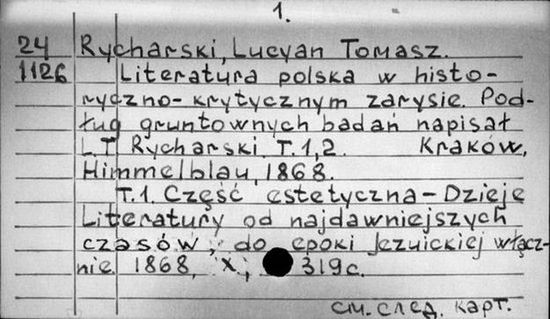 1.
24 Rycharski, Lucyan Tomasz.
1126 Literatura polska w histo-
ryczno-krytycznym zarysie. Pod-
ług gruntownych badań napisał
L.T. Rycharski. T.1,2. Kraków,
Himmelblau, 1868.
T.1. Część estetyczna - Dzieje
Literatury od najdawniejszych
czasów, do epoki Jezuickiej włącz-
nie 1868, X, 319c.
см. след. карт.